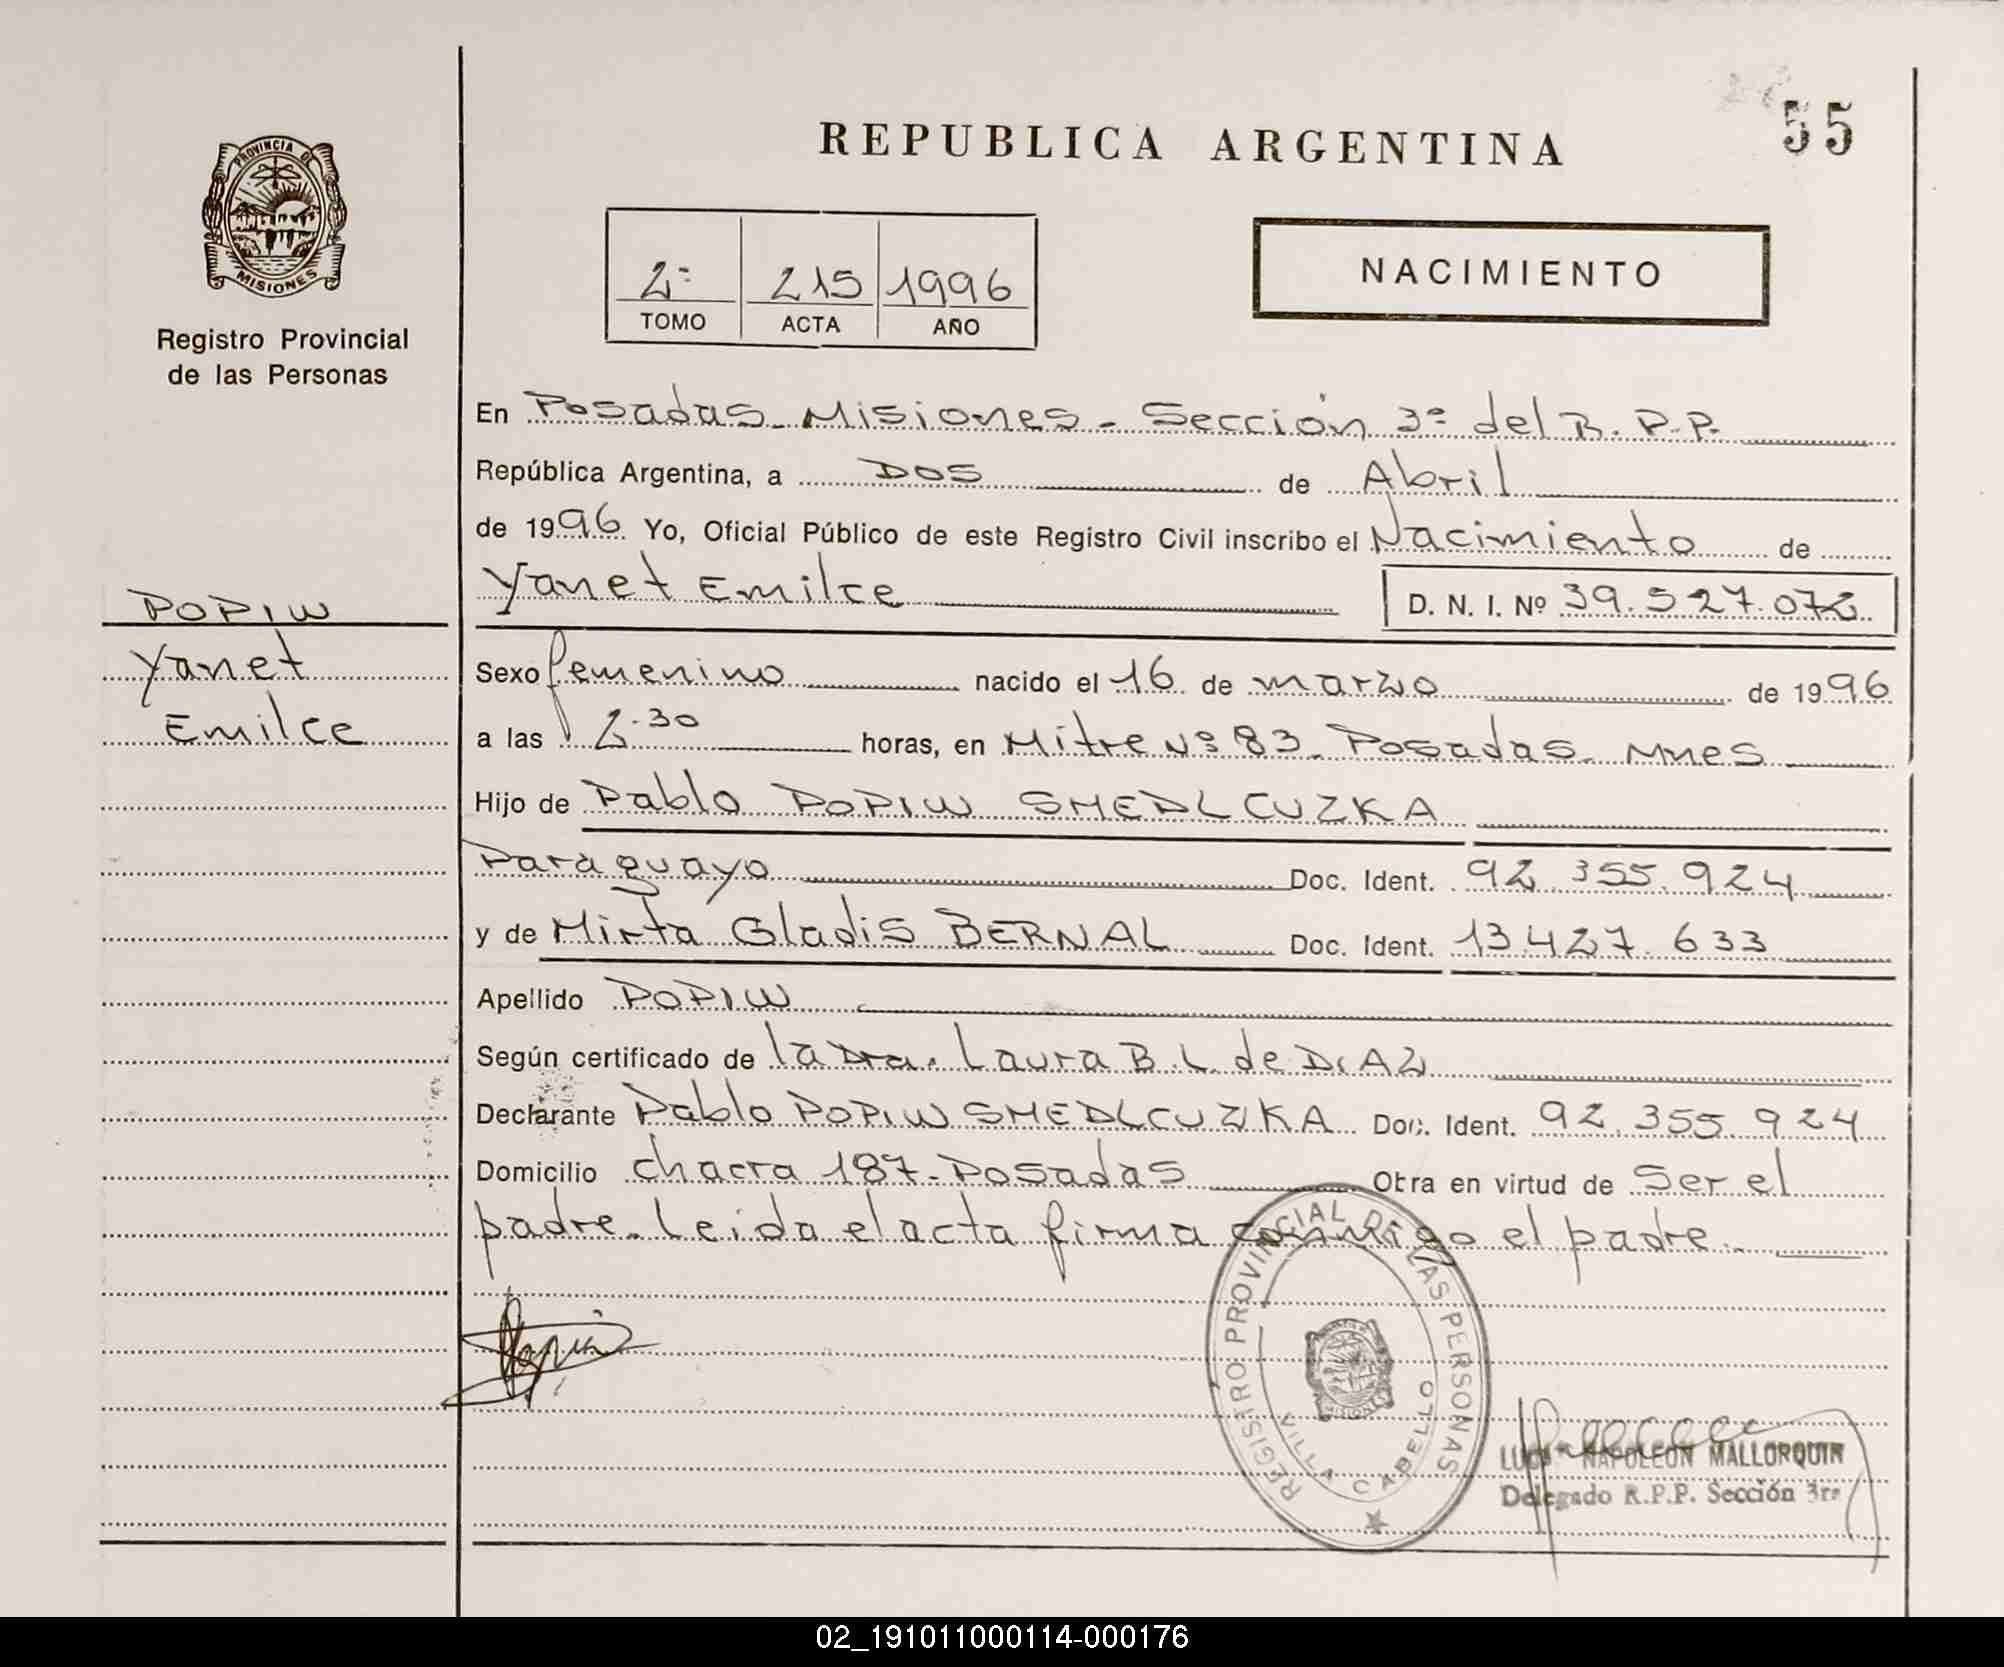 55
REPUBLICA ARGENTINA
PROVINCIA DE
MISIONES
Registro Provincial
de las Personas
2º 215 1996
TOMO ACTA AÑO
NACIMIENTO
En Posadas - Misiones - Sección 3º del R.P.P.
República Argentina, a DOS de Abril
de 1996 Yo, Oficial Público de este Registro Civil inscribo el Nacimiento de
Yanet Emilce D. N. I. Nº 39.527.072
POPIW
Yanet
Emilce
Sexo femenino nacido el 16 de marzo de 1996
a las 2.30 horas, en Mitre Nº 83 - Posadas - Mnes
Hijo de Pablo POPIW SMEDLCUZKA
Paraguayo Doc. Ident. 92.355.924
y de Mirta Gladis BERNAL Doc. Ident. 13.427.633
Apellido POPIW
Según certificado de la Dra. Laura B. L. de DIAZ
Declarante Pablo POPIW SMEDLCUZKA Doc. Ident. 92.355.924
Domicilio chacra 187 - Posadas Obra en virtud de Ser el
padre. Leida el acta firma conmigo el padre.
REGISTRO PROVINCIAL DE LAS PERSONAS
VILLA CABELLO
MISIONES
NAPOLEON MALLORQUIN
Delegado R.P.P. Sección 3ra
02_191011000114-000176